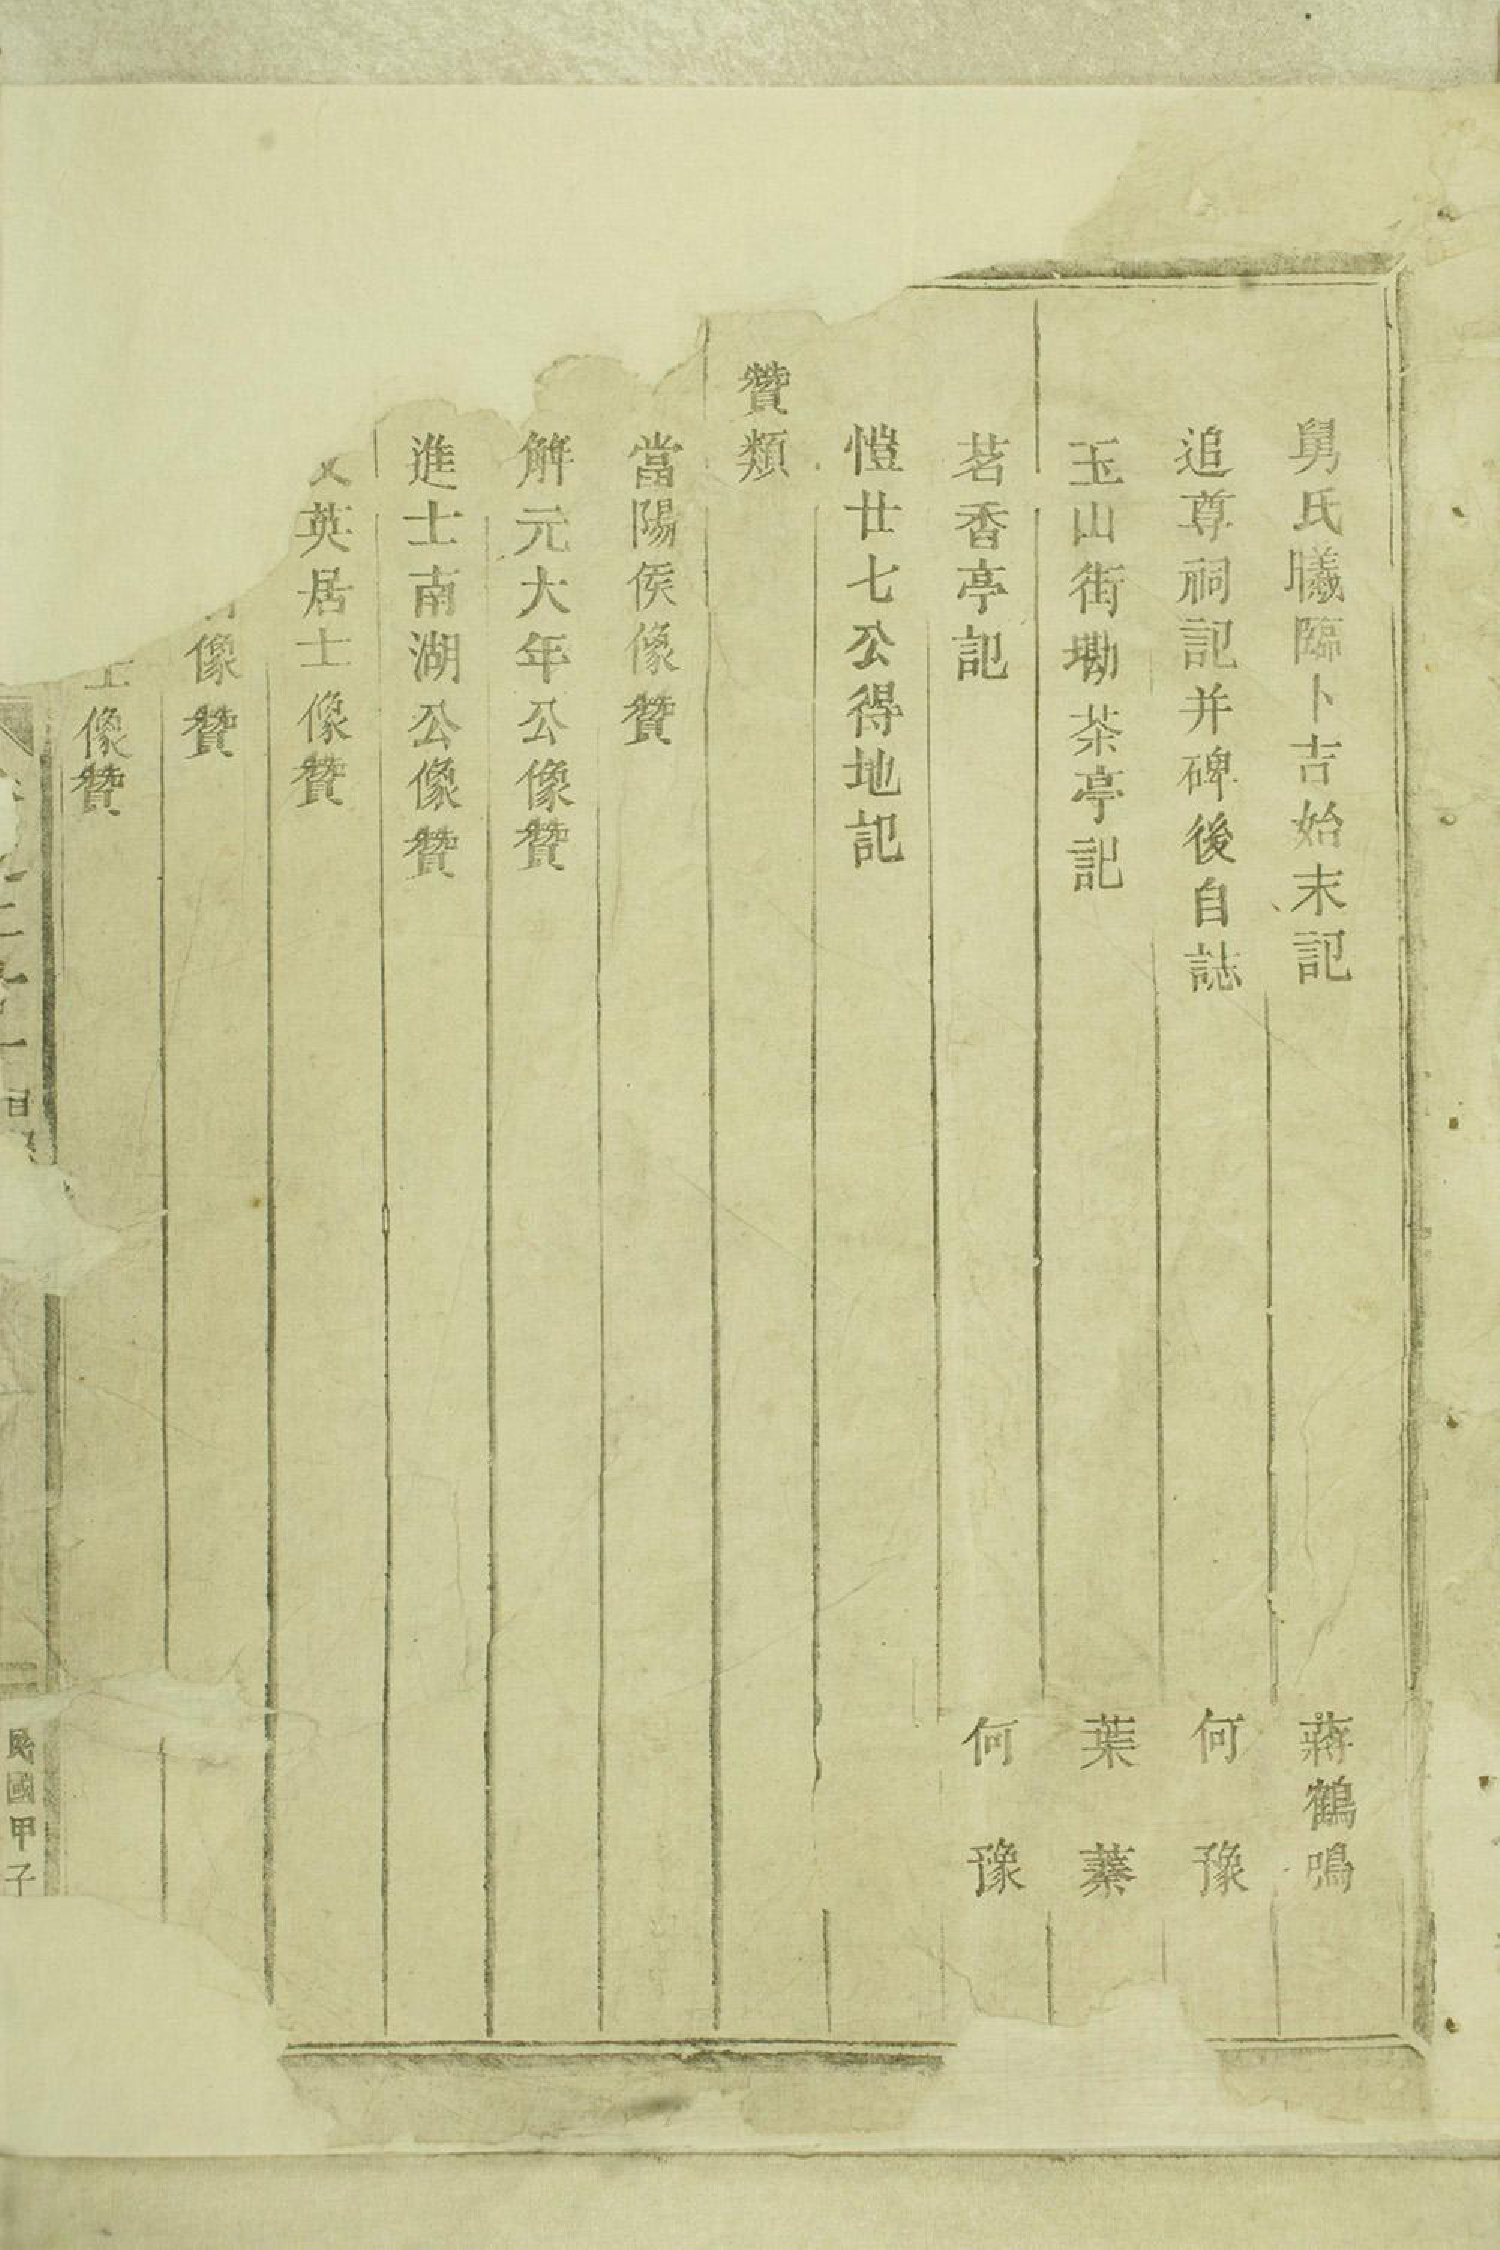 舅氏曦臨卜吉始末記 蔣鶴鳴
追尊祠記并碑後自誌 何豫
玉山街墈茶亭記 葉蓁
茗香亭記 何豫
愷廿七公得地記
贊類
當陽侯像贊
解元大年公像贊
進士南湖公像贊
英居士像贊
像贊
像贊
民國甲子